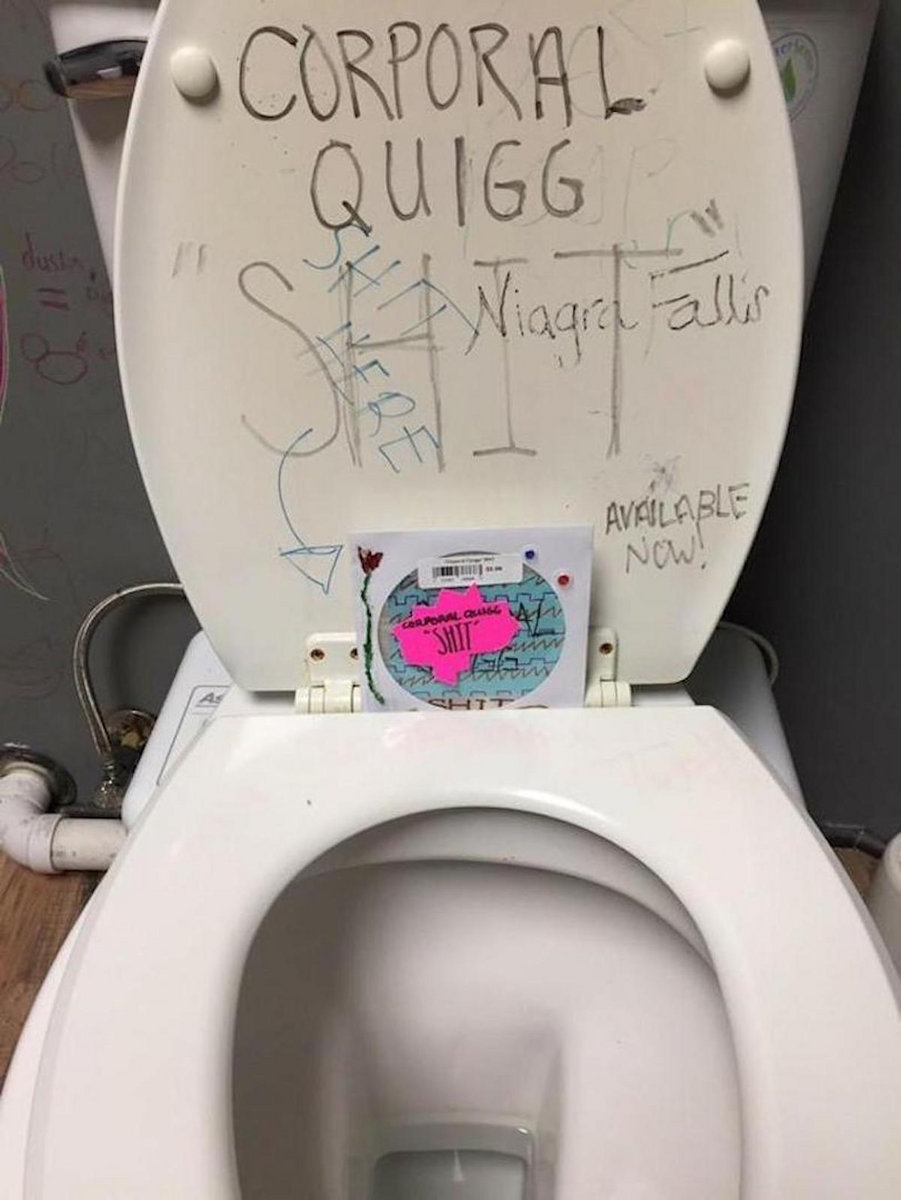 CORPORAL
QUIGG
"SHIT"
SHIT
HERE
Niagra Falls
AVAILABLE
NOW!
CORPORAL QUIGG
"SHIT"
SHIT
As